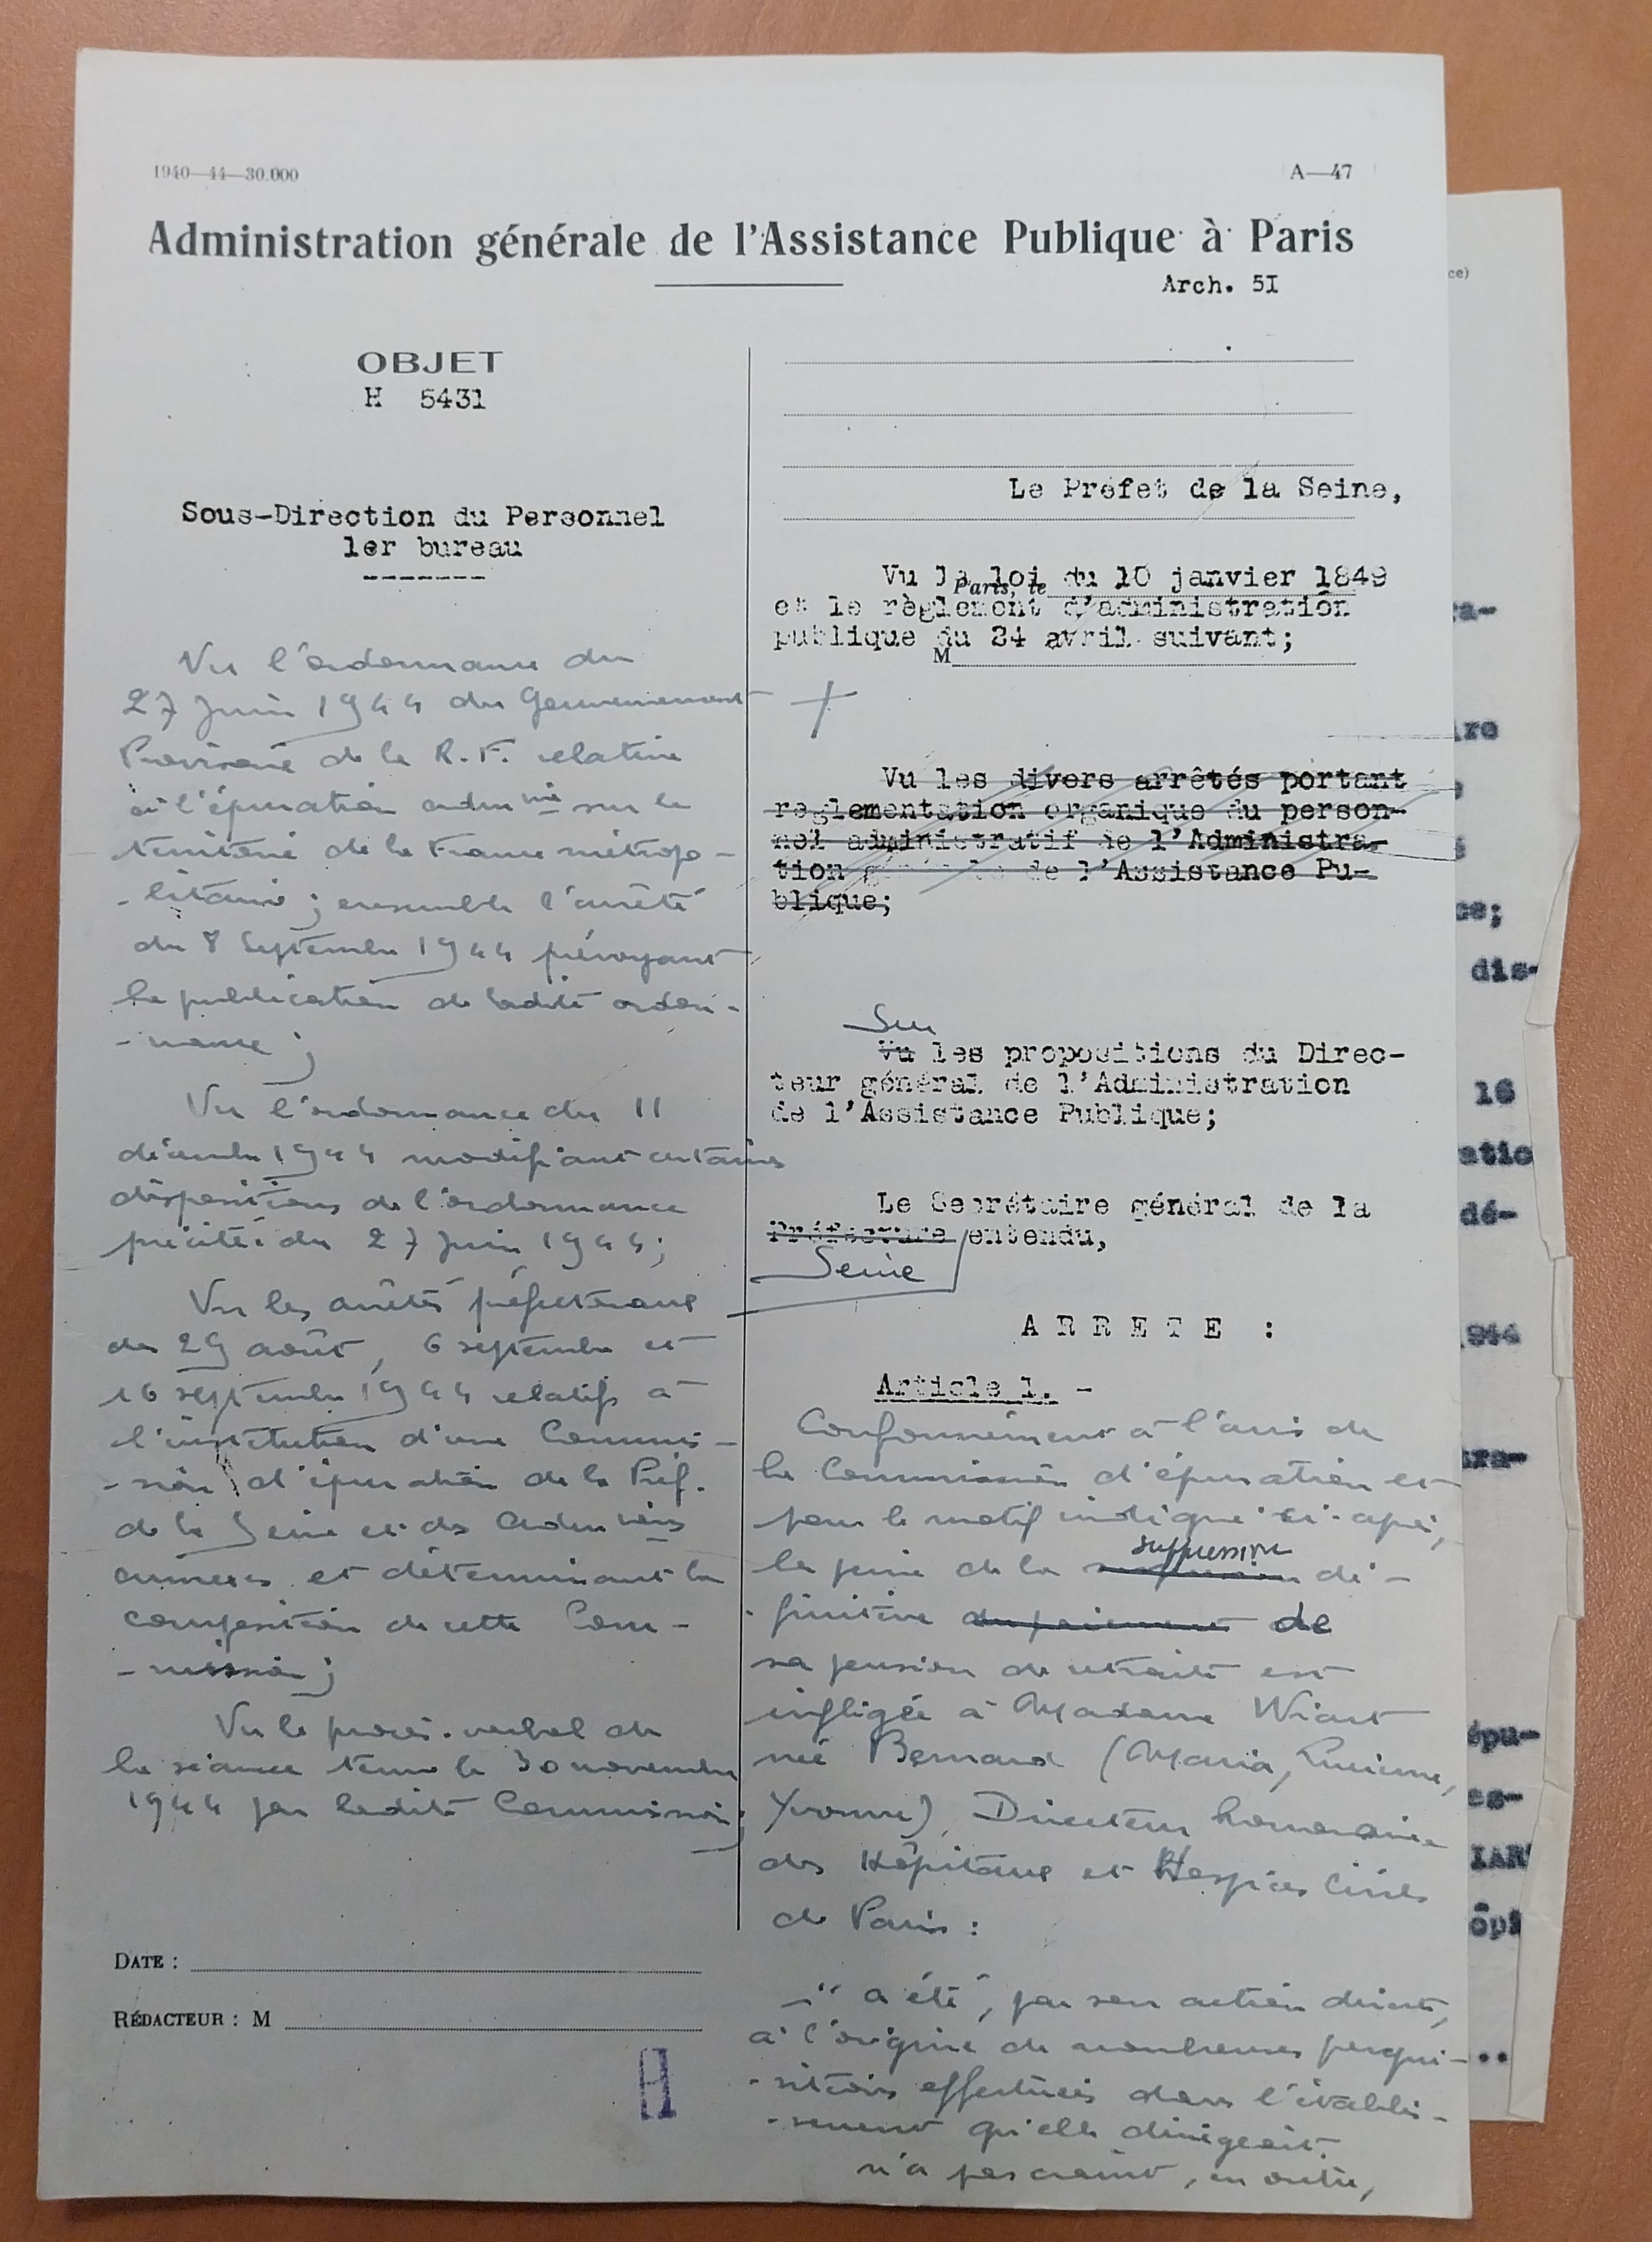 1940—44—30.000
A—47
Administration générale de l'Assistance Publique à Paris
Arch. 5I
OBJET
H 5431
Sous-Direction du Personnel
1er bureau
-------
Vu l'ordonnance du
27 Juin 1944 du Gouvernement
Provisoire de la R.F. relative
à l'épuration adm nive sur le
territoire de la France métropo-
-litaine ; ensemble l'arrêté
du 8 Septembre 1944 prévoyant
la publication de ladite ordon-
-nance ;
Vu l'ordonnance du 11
décembre 1944 modifiant certaines
dispositions de l'ordonnance
précitée du 27 Juin 1944;
Vu les arrêtés préfectoraux
des 29 août, 6 septembre et
16 septembre 1944 relatifs à
l'institution d'une Commis-
-sion d'épuration de la Préf.
de la Seine et des Adm nions
annexes et déterminant la
composition de cette Com-
-mission ;
Vu le procès-verbal de
la séance tenue le 30 novembre
1944 par ladite Commission ;
DATE :
RÉDACTEUR : M
H
Le Préfet de la Seine,
Vu la loi du 10 janvier 1849
Paris, le
et le règlement d'administration
publique du 24 avril suivant;
M
+
Vu les divers arrêtés portant
reglementation organique du person-
nel administratif de l'Administra-
tion générale de l'Assistance Pu-
blique;
Sur
Vu les propositions du Direc-
teur général de l'Administration
de l'Assistance Publique;
Le Secrétaire général de la
Préfecture entendu,
Seine
A R R E T E :
Article 1. -
Conformément à l'avis de
la Commission d'épuration et
pour le motif indiqué ci-après,
suppression
la peine de la suspension dé-
-finitive du paiement de
sa pension de retraite est
infligée à Madame Wiart
née Bernard (Maria, Lucienne,
Yvonne), Directeur honoraire
des Hôpitaux et Hospices Civils
de Paris :
-" a été, par son action directe,
à l'origine de nombreuses perqui-
-sitions effectuées dans l'établis-
-sement qu'elle dirigeait.
n'a pas craint, en outre,
ce)
ra-
ire
ce;
dis-
16
atio
dé-
944
ara-
épu-
es-
IAR
ôpi
..